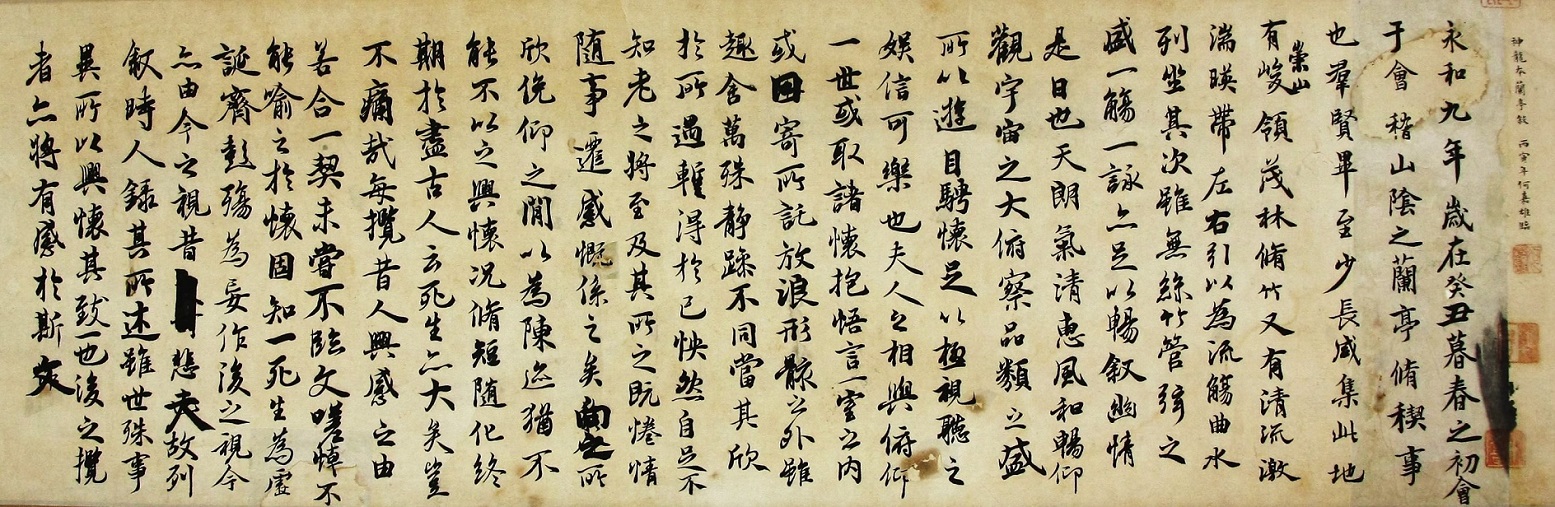 神龍本蘭亭敘 丙寅年何嘉雄臨
永和九年歲在癸丑暮春之初會
于會稽山陰之蘭亭脩稧事
也羣賢畢至少長咸集此地
有崇山峻領茂林脩竹又有清流激
湍暎帶左右引以為流觴曲水
列坐其次雖無絲竹管弦之
盛一觴一詠亦足以暢敘幽情
是日也天朗氣清惠風和暢仰
觀宇宙之大俯察品類之盛
所以遊目騁懷足以極視聽之
娛信可樂也夫人之相與俯仰
一世或取諸懷抱悟言一室之內
或因寄所託放浪形骸之外雖
趣舍萬殊靜躁不同當其欣
於所遇蹔得於己怏然自足不
知老之將至及其所之既惓情
隨事遷感慨係之矣向之所
欣俛仰之閒以為陳迹猶不
能不以之興懷況脩短隨化終
期於盡古人云死生亦大矣豈
不痛哉每攬昔人興感之由
若合一契未嘗不臨文嗟悼不
能喻之於懷固知一死生為虛
誕齊彭殤為妄作後之視今
亦由今之視昔悲夫故列
敘時人錄其所述雖世殊事
異所以興懷其致一也後之攬
者亦將有感於斯文